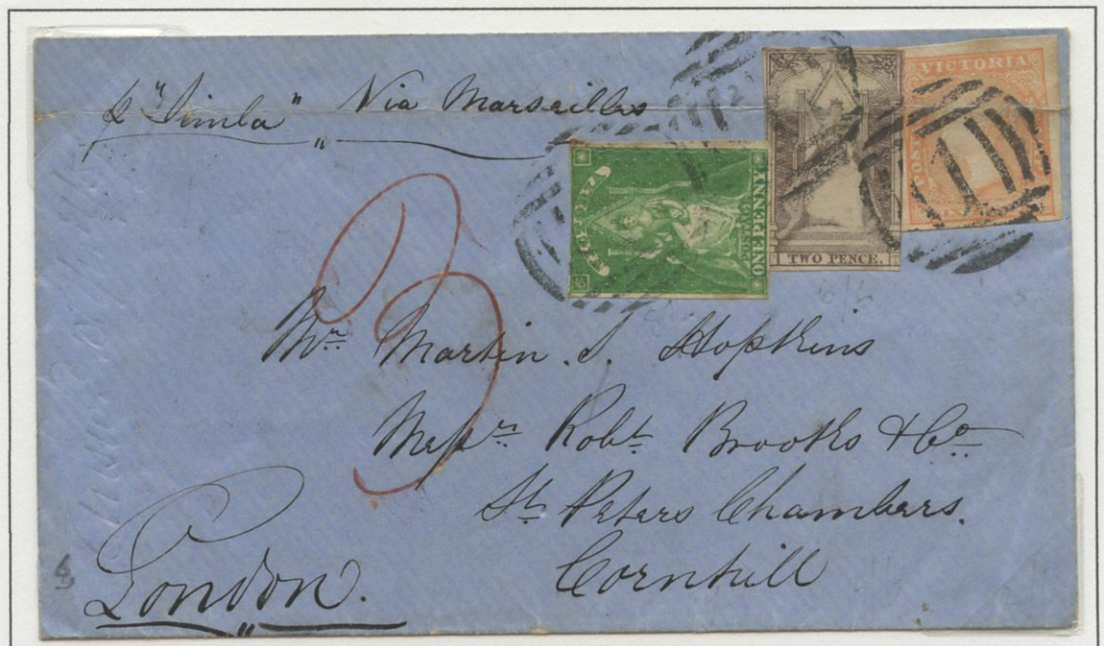 pr "Simla" Via Marseilles
VICTORIA
POSTAGE
ONE PENNY
TWO PENCE.
3
Mr Martin S. Hopkins
Messrs Robt Brooks & Co
St Peters Chambers.
Cornhill
London.